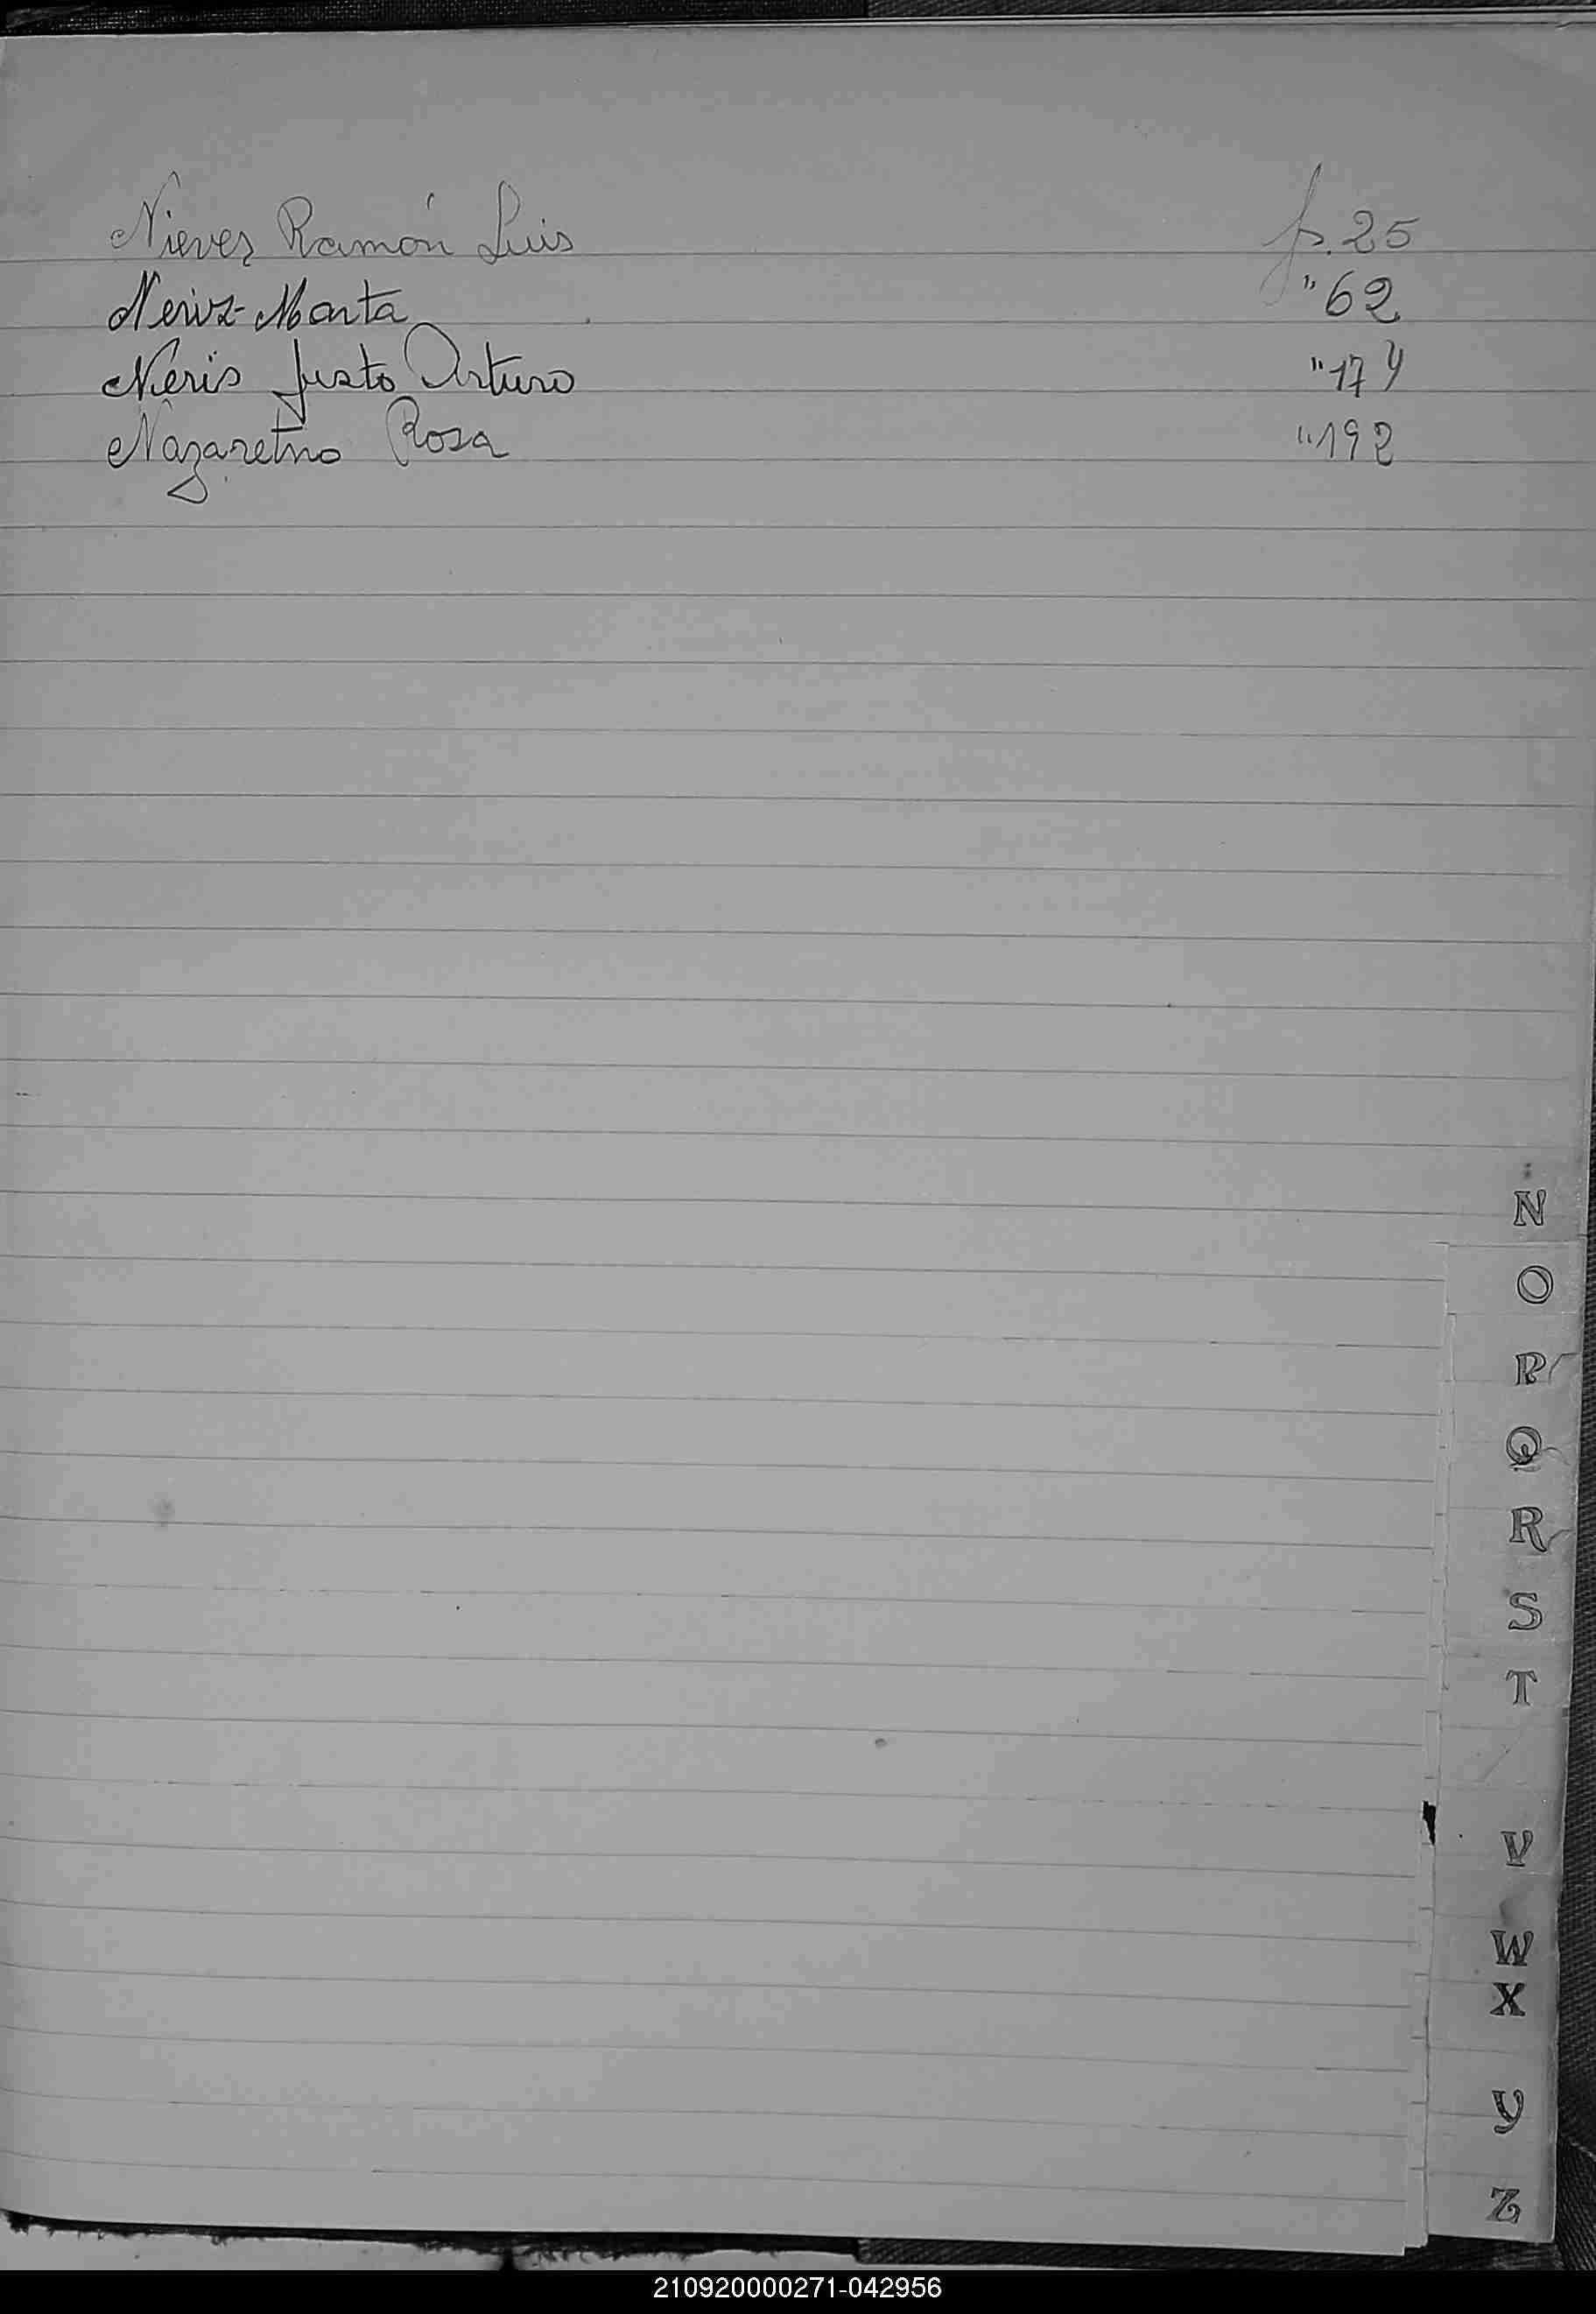 Nieves Ramón Luis f. 25
Neris Marta " 62
Neris Justo Arturo " 174
Nazaretno Rosa " 192
N
O
P
Q
R
S
T
V
W
X
Y
Z
210920000271-042956